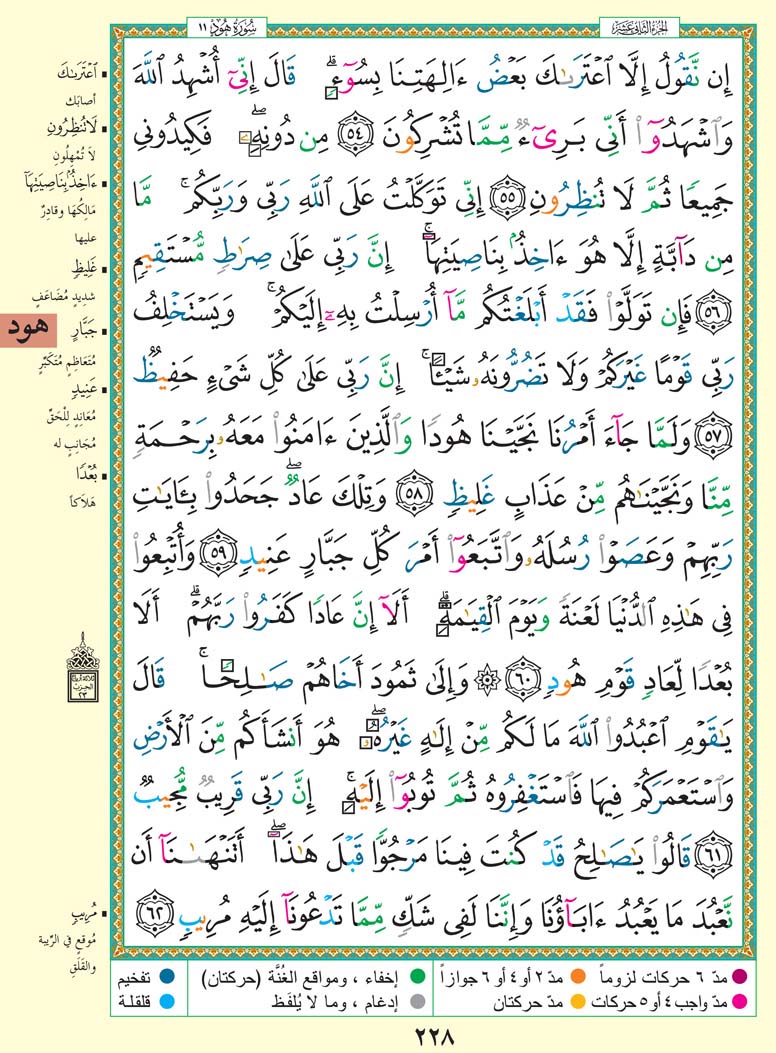 سُورَةُ هُودٍ ١١
الجزء الثاني عشر
إِن نَّقُولُ إِلَّا ٱعْتَرَىٰكَ بَعْضُ ءَالِهَتِنَا بِسُوٓءٍ ۗ قَالَ إِنِّىٓ أُشْهِدُ ٱللَّهَ
وَٱشْهَدُوٓا۟ أَنِّى بَرِىٓءٌ مِّمَّا تُشْرِكُونَ ﴿٥٤﴾ مِن دُونِهِۦ ۖ فَكِيدُونِى
جَمِيعًا ثُمَّ لَا تُنظِرُونِ ﴿٥٥﴾ إِنِّى تَوَكَّلْتُ عَلَى ٱللَّهِ رَبِّى وَرَبِّكُم ۚ مَّا
مِن دَآبَّةٍ إِلَّا هُوَ ءَاخِذٌۢ بِنَاصِيَتِهَآ ۚ إِنَّ رَبِّى عَلَىٰ صِرَٰطٍ مُّسْتَقِيمٍ
﴿٥٦﴾ فَإِن تَوَلَّوْا۟ فَقَدْ أَبْلَغْتُكُم مَّآ أُرْسِلْتُ بِهِۦٓ إِلَيْكُمْ ۚ وَيَسْتَخْلِفُ
رَبِّى قَوْمًا غَيْرَكُمْ وَلَا تَضُرُّونَهُۥ شَيْـًٔا ۚ إِنَّ رَبِّى عَلَىٰ كُلِّ شَىْءٍ حَفِيظٌ
﴿٥٧﴾ وَلَمَّا جَآءَ أَمْرُنَا نَجَّيْنَا هُودًا وَٱلَّذِينَ ءَامَنُوا۟ مَعَهُۥ بِرَحْمَةٍ
مِّنَّا وَنَجَّيْنَٰهُم مِّنْ عَذَابٍ غَلِيظٍ ﴿٥٨﴾ وَتِلْكَ عَادٌ ۖ جَحَدُوا۟ بِـَٔايَٰتِ
رَبِّهِمْ وَعَصَوْا۟ رُسُلَهُۥ وَٱتَّبَعُوٓا۟ أَمْرَ كُلِّ جَبَّارٍ عَنِيدٍ ﴿٥٩﴾ وَأُتْبِعُوا۟
فِى هَٰذِهِ ٱلدُّنْيَا لَعْنَةً وَيَوْمَ ٱلْقِيَٰمَةِ ۗ أَلَآ إِنَّ عَادًا كَفَرُوا۟ رَبَّهُمْ ۗ أَلَا
بُعْدًا لِّعَادٍ قَوْمِ هُودٍ ﴿٦٠﴾ ۞ وَإِلَىٰ ثَمُودَ أَخَاهُمْ صَٰلِحًا ۚ قَالَ
يَٰقَوْمِ ٱعْبُدُوا۟ ٱللَّهَ مَا لَكُم مِّنْ إِلَٰهٍ غَيْرُهُۥ ۖ هُوَ أَنشَأَكُم مِّنَ ٱلْأَرْضِ
وَٱسْتَعْمَرَكُمْ فِيهَا فَٱسْتَغْفِرُوهُ ثُمَّ تُوبُوٓا۟ إِلَيْهِ ۚ إِنَّ رَبِّى قَرِيبٌ مُّجِيبٌ
﴿٦١﴾ قَالُوا۟ يَٰصَٰلِحُ قَدْ كُنتَ فِينَا مَرْجُوًّا قَبْلَ هَٰذَآ ۖ أَتَنْهَىٰنَآ أَن
نَّعْبُدَ مَا يَعْبُدُ ءَابَآؤُنَا وَإِنَّنَا لَفِى شَكٍّ مِّمَّا تَدْعُونَآ إِلَيْهِ مُرِيبٍ ﴿٦٢﴾
ٱعْتَرَىٰكَ
أصابَك
لَا تُنظِرُونِ
لَا تُمْهِلُونِ
ءَاخِذٌۢ بِنَاصِيَتِهَآ
مَالِكُهَا وقادِرٌ
عليها
غَلِيظٍ
شديدٍ مُضَاعَفٍ
جَبَّارٍ
مُتعَاظِمٍ مُتَكَبِّرٍ
عَنِيدٍ
مُعَانِدٍ لِلْحَقِّ
مُجَانِبٍ له
بُعْدًا
هَلَاكاً
هود
ثلاثة أرباع
الحزب
٢٣
مُرِيبٍ
مُوقِعٍ في الرِّيبة
والقَلَقِ
مدّ ٦ حركات لزوماً
مدّ ٢ أو ٤ أو ٦ جوازاً
إخفاء ، ومواقع الغُنَّة (حركتان)
تفخيم
مدّ واجب ٤ أو ٥ حركات
مدّ حركتان
إدغام ، وما لا يُلفَظ
قلقلة
٢٢٨